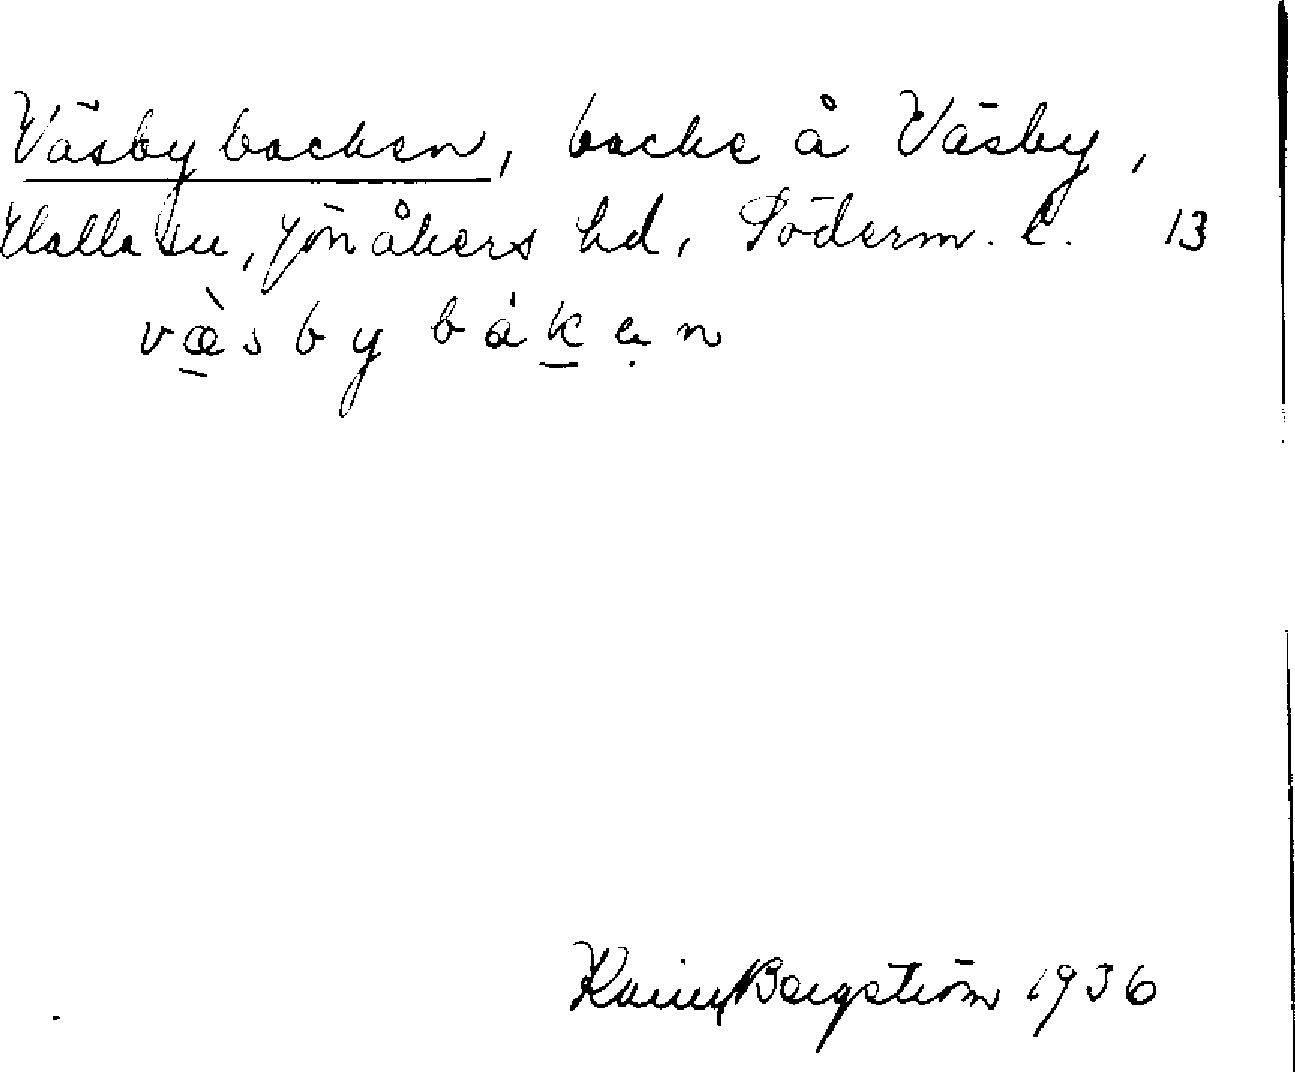 Väsbybacken, backe å Väsby,
Halla sn, Jönåkers hd, Söderm. l. 13
væ̀sby båkɐn
Karin Bergström 1936